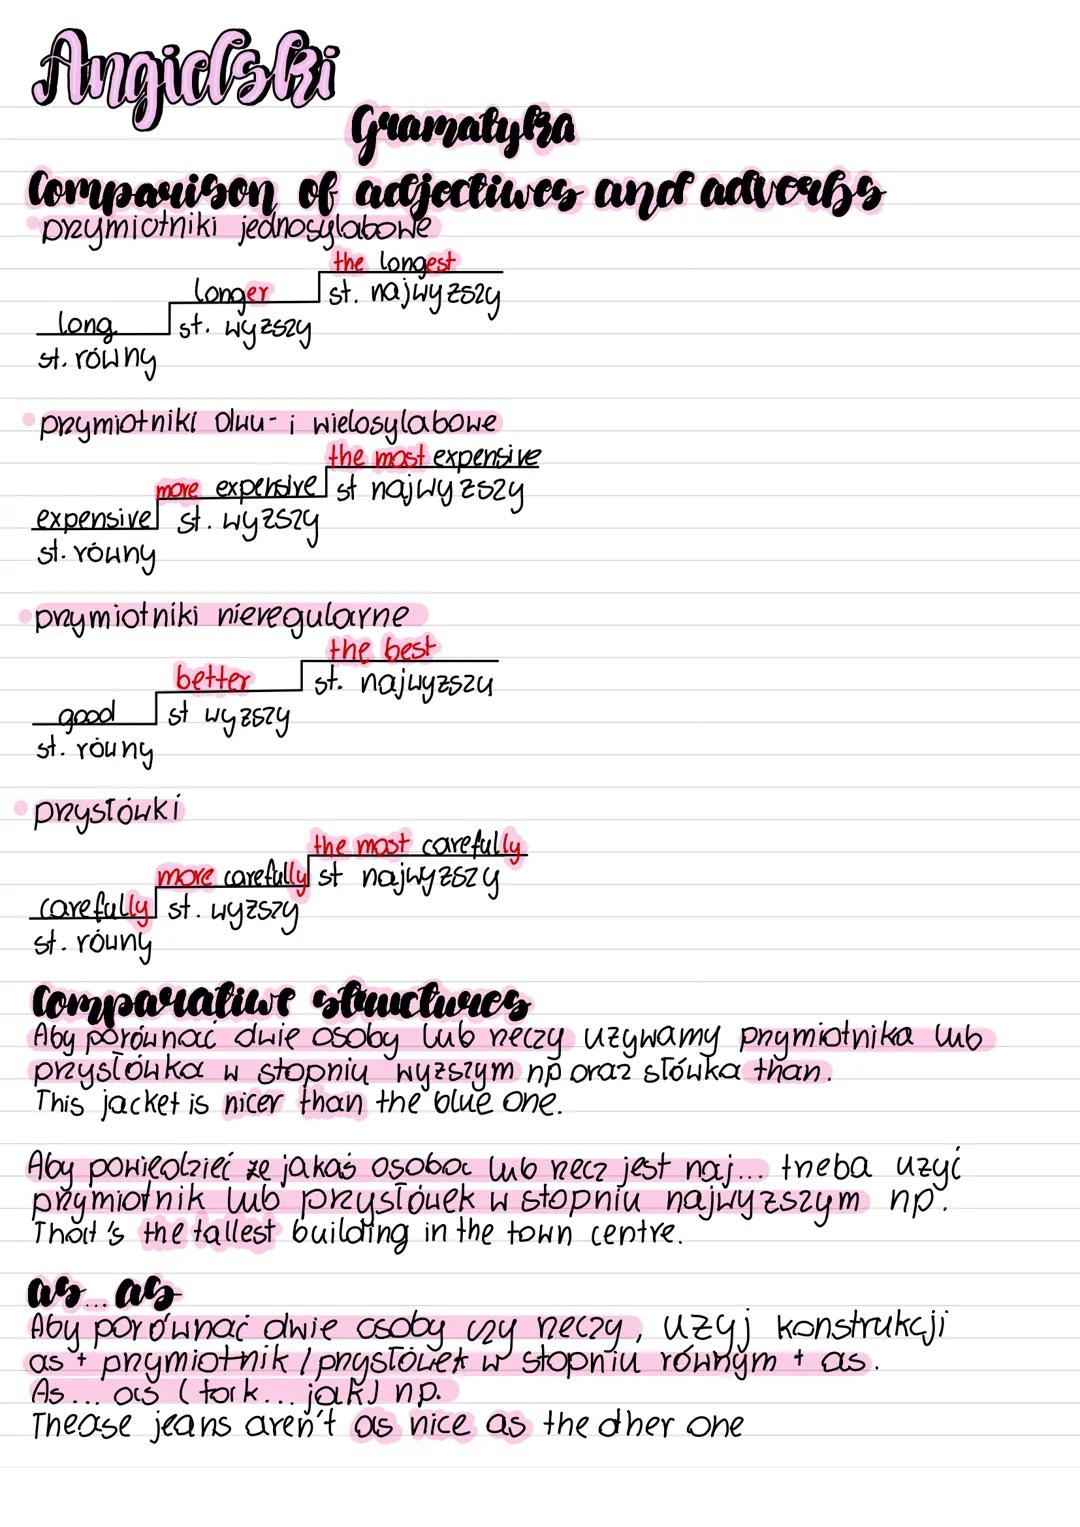 Angielski
Gramatyka
Comparison of adjectiwes and adverbs
przymiotniki jednosylabowe
the longest
longer st. najwyższy
long st. wyższy
st. równy
przymiotniki dwu- i wielosylabowe
the most expensive
more expensive st najwyższy
expensive st. wyższy
st. równy
przymiotniki nieregularne
the best
better st. najwyższy
good st wyższy
st. równy
przysłówki
the most carefully
more carefully st najwyższy
carefully st. wyższy
st. równy
Comparatiwe structures
Aby porównać dwie osoby lub rzeczy używamy przymiotnika lub
przysłówka w stopniu wyższym np oraz słówka than.
This jacket is nicer than the blue one.
Aby powiedzieć że jakaś osoba lub rzecz jest naj... trzeba użyć
przymiotnik lub przysłówek w stopniu najwyższym np.
That's the tallest building in the town centre.
as...as
Aby porównać dwie osoby czy rzeczy, użyj konstrukcji
as + przymiotnik / przysłówek w stopniu równym + as.
As... as (tak... jak) np.
Thease jeans aren't as nice as the other one